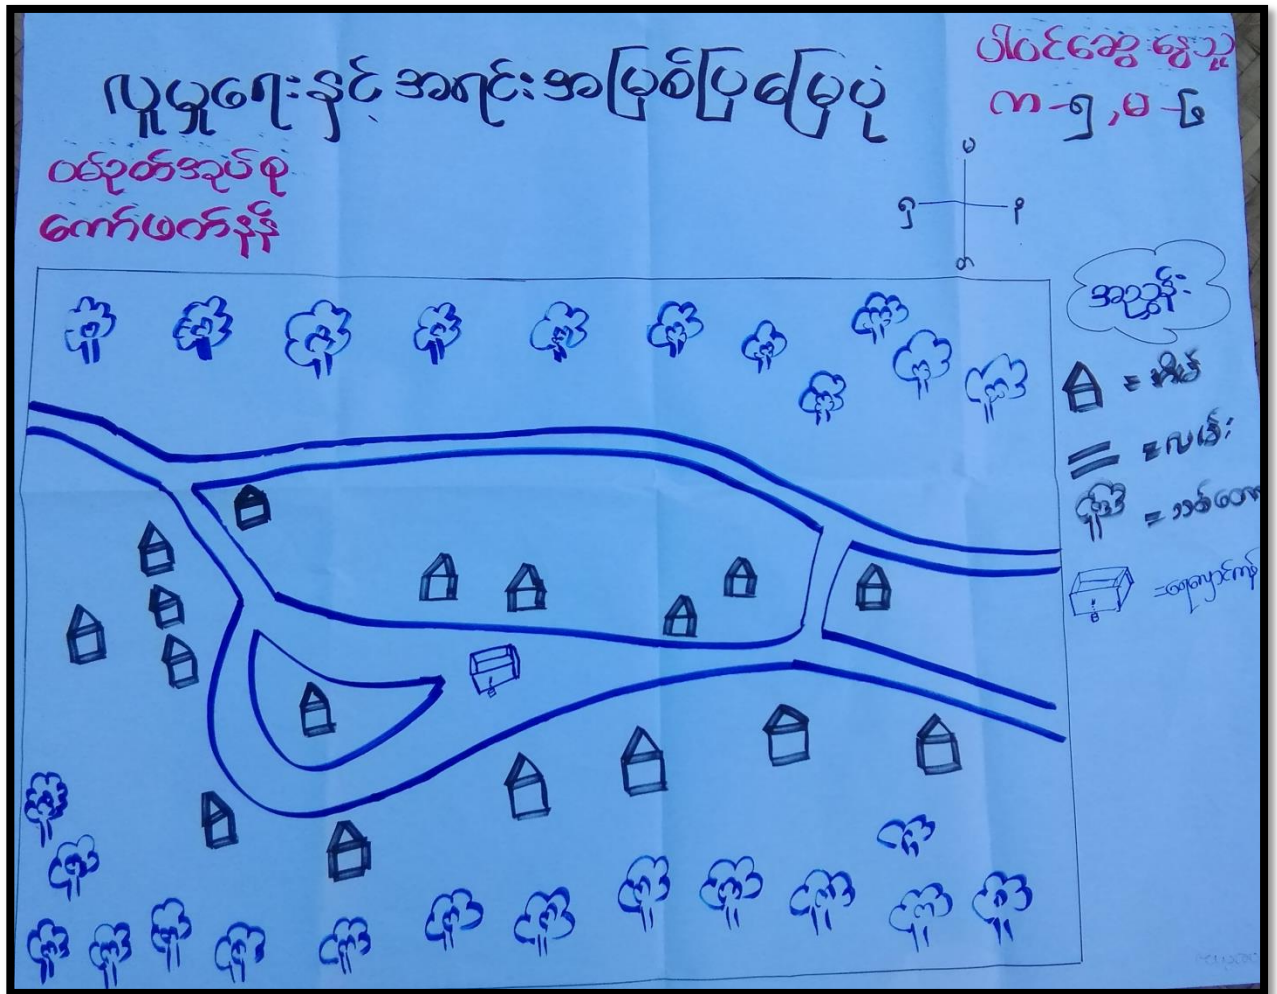 လူမှုရေးနှင့် အရင်းအမြစ်ပြမြေပုံ
ပါဝင်ဆွေးနွေးသူ
က - ၅ , မ - ၆
ဝမ်ခုတ်အုပ်စု
ကော်ဖက်နန်
အညွှန်း
= အိမ်
= လမ်း
= သစ်တော
= ရေလှောင်ကန်